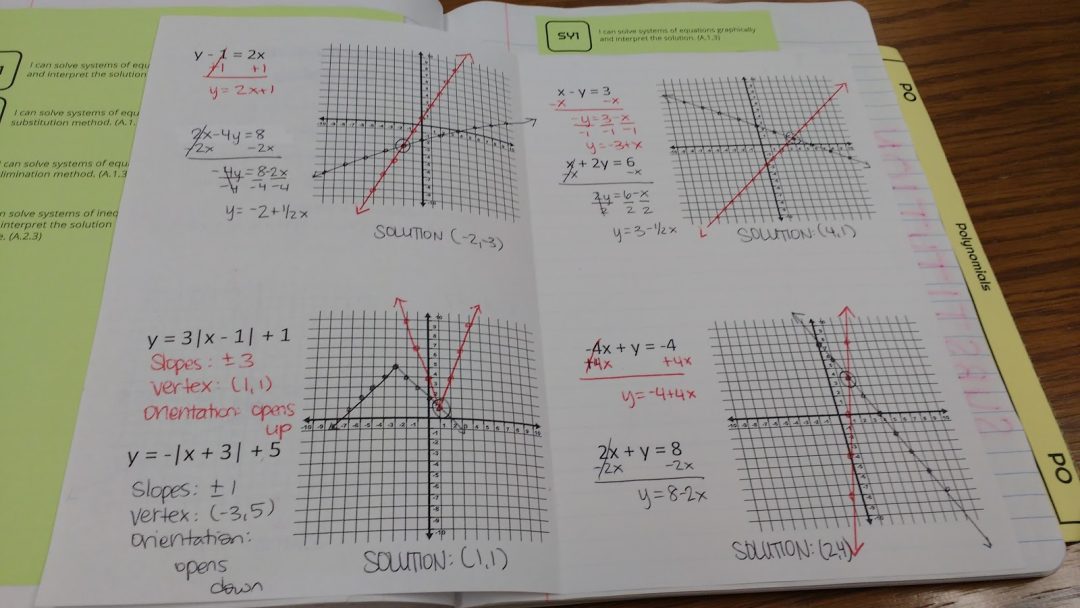 I can solve systems of equ
and interpret the solution
I can solve systems of equ
substitution method. (A.1.
can solve systems of equ
limination method. (A.1.3
n solve systems of ineq
interpret the solution
e. (A.2.3)
y - 1 = 2x
+1 +1
y = 2x+1
2x-4y=8
-2x -2x
-4y=8-2x
-4 -4 -4
y = -2+1/2x
SOLUTION (-2,-3)
y = 3|x - 1| + 1
Slopes: ±3
vertex: (1,1)
Orientation: opens
up
y = -|x + 3| + 5
Slopes: ±1
vertex: (-3,5)
Orientation:
opens
down
SOLUTION: (1,1)
SY1
I can solve systems of equations graphically
and interpret the solution. (A.1.3)
x - y = 3
-x -x
-y=3-x
-1 -1 -1
y=-3+x
x + 2y = 6
-x -x
2y=6-x
2 2 2
y=3-1/2x
SOLUTION: (4,1)
-4x + y = -4
+4x +4x
y=-4+4x
2x + y = 8
-2x -2x
y=8-2x
SOLUTION: (2,4)
PO
Polynomials
PO